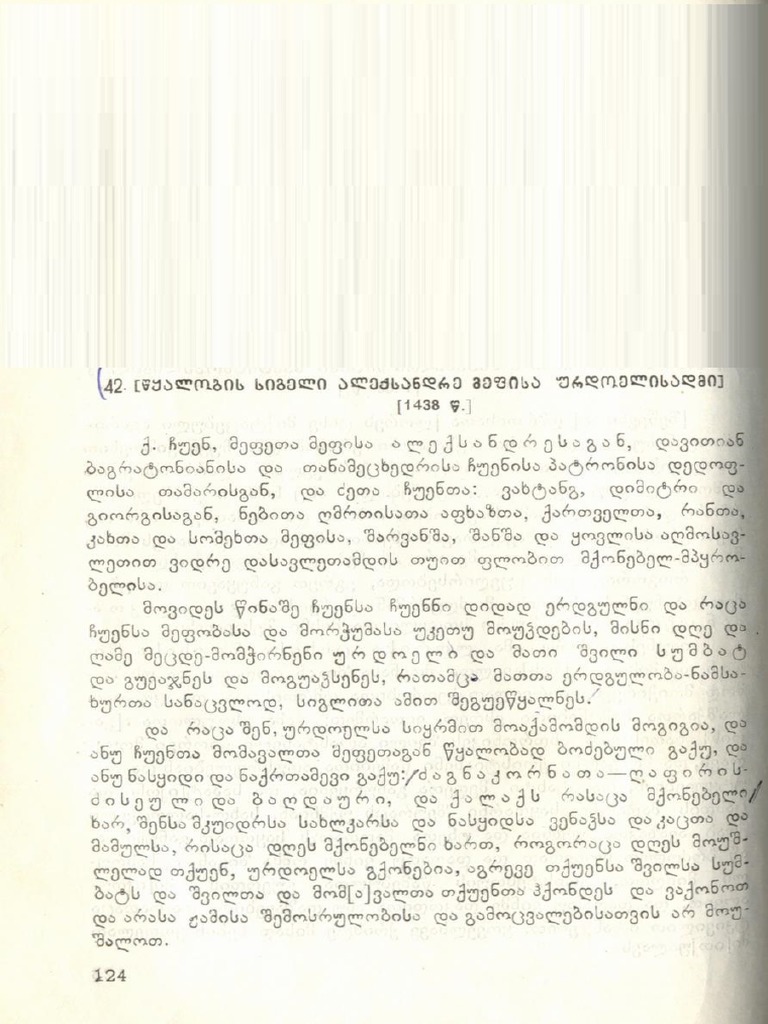 42. [წყალობის სიგელი ალექსანდრე მეფისა ურდოელისადმი]
[1438 წ.]
ქ. ჩუენ, მეფეთა მეფისა ალექსანდრესაგან, დავითიან
ბაგრატონიანისა და თანამეცხედრისა ჩუენისა პატრონისა დედოფ-
ლისა თამარისგან, და ძეთა ჩუენთა: ვახტანგ, დიმიტრი და
გიორგისაგან, ნებითა ღმრთისათა აფხაზთა, ქართველთა, რანთა,
კახთა და სომეხთა მეფისა, შარვანშა, შანშა და ყოვლისა აღმოსავ-
ლეთით ვიდრე დასავლეთამდის თუით ფლობით მქონებელ-მპყრო-
ბელისა.
მოვიდეს წინაშე ჩუენსა ჩუენნი დიდად ერდგულნი და რაცა
ჩუენსა მეფობასა და მორჭუმასა უკეთუ მოუჴდების, მისნი დღე და
ღამე მეცდე-მომჭირნენი ურდოელი და მათი შვილი სუმბატ
და გუეაჯნეს და მოგუაჴსენეს, რათამცა მათთა ერდგულობა-ნამსა-
ხურთა სანაცვლოდ, სიგლითა ამით შეგუეწყალნეს.
და რაცა შენ, ურდოელსა სიყრმით მოაქამომდის მოგიგია, და
ანუ ჩუენთა მომავალთა მეფეთაგან წყალობად ბოძებული გაქუ, და
ანუ ნასყიდი და ნაქრთამევი გაქუ: ძაგნაკორნათა—ღაფირის-
ძისეული და ბაღდაური, და ქალაქს რასაცა მქონებელი
ხარ, შენსა მკუიდრსა სახლკარსა და ნასყიდსა ვენაჴსა და კაცთა და
მამულსა, რისაცა დღეს მქონებელნი ხართ, როგორაცა დღეს მოუშ-
ლელად თქუენ, ურდოელსა გქონებია, აგრევე თქუენსა შვილსა სუმ-
ბატს და შვილთა და მომ[ა]ვალთა თქუენთა ჰქონდეს და ვაქონოთ
და არასა ჟამისა შემოსრულობისა და გამოცვალებისათვის არ მოუ-
შალოთ.
124